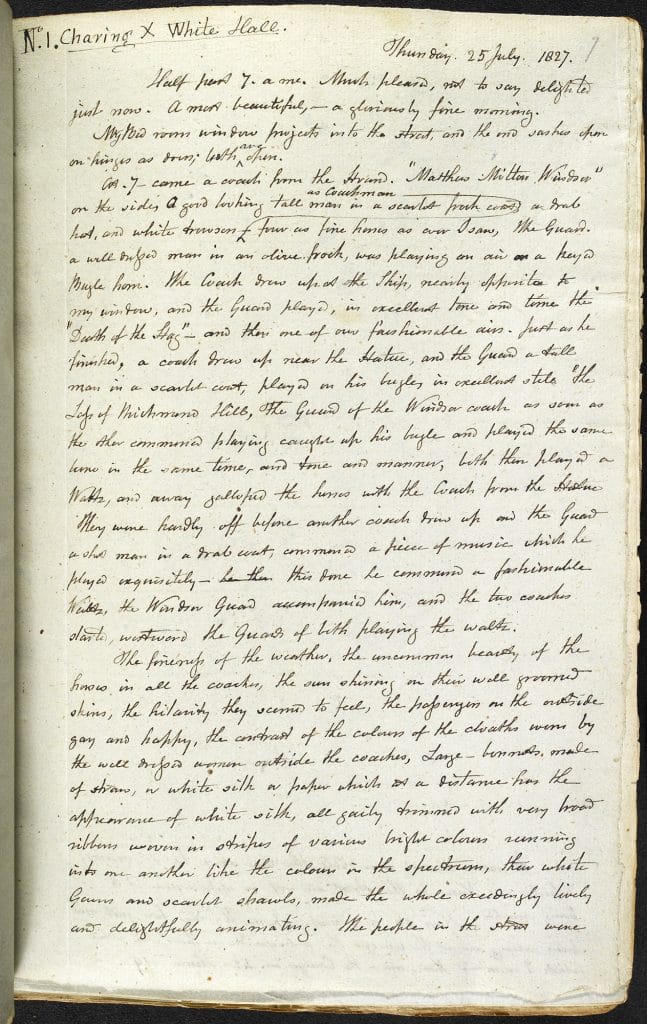 No. 1. Charing X White Hall.
7
Thursday. 25 July. 1827.
Half past 7. a.m. Much pleased, not to say delighted
just now. A most beautiful, – a gloriously fine morning.
My Bed room window projects into the street, and the end sashes open
on hinges as doors; both are open.
At. 7 – came a coach from the Strand. "Matthews Milton Windsor"
on the sides, A good looking tall man as Coachman in a scarlet frock coat, a drab
hat, and white trowsers, four as fine horses as ever I saw, The Guard.
a well dressed man in an olive frock, was playing an air on a keyed
Bugle horn. The Coach drew up at the Ship, nearly opposite to
my window, and the Guard played, in excellent tone and time the
"Death of the Stag" – and then one of our fashionable airs. Just as he
finished, a coach drew up near the Statue, and the Guard a tall
man in a scarlet coat, played on his bugle, in excellent stile "The
Lass of Richmond Hill, The Guard of the Windsor coach as soon as
the other commenced playing caught up his bugle and played the same
tune in the same time, and tone and manner, both then played a
Waltz, and away galloped the horses with the Coach from the Statue
They were hardly off before another coach drew up and the Guard
a stout man in a drab coat, commenced a piece of music which he
played exquisitely – he then this done he commenced a fashionable
Waltz, the Windsor Guard accompanied him, and the two coaches
started, westward the Guards of both playing the waltz.
The fineness of the weather, the uncommon beauty of the
horses in all the coaches, the sun shining on their well groomed
skins, the hilarity they seemed to feel, the passengers on the outside
gay and happy, the contrast of the colours of the cloaths worn by
the well dressed women outside the coaches, Large – bonnets, made
of straw, or white silk or paper which at a distance has the
appearance of white silk, all gaily trimmed with very broad
ribbons woven in stripes of various bright colours running
into one another like the colours in the spectrum, their white
Gowns and scarlet shawls, made the whole exceedingly lively
and delightfully animating. The people in the street were